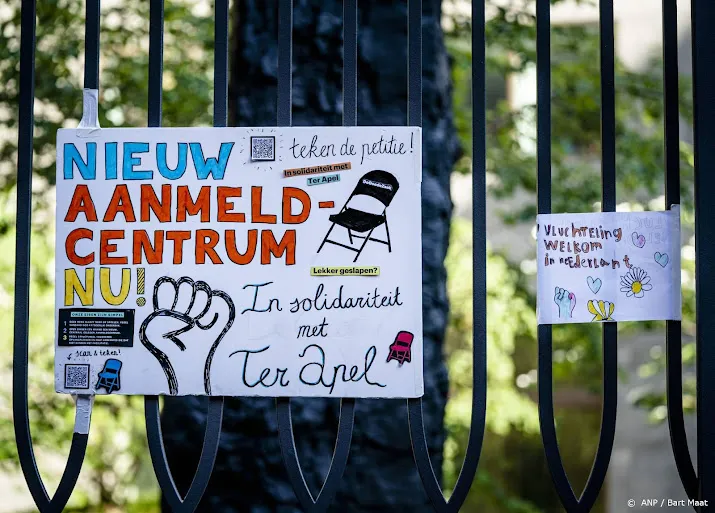 NIEUW
AANMELD-
CENTRUM
NU!
teken de petitie!
In solidariteit met
Ter Apel
Lekker geslapen?
In solidariteit
met
Ter Apel
scan & teken!
VLUCHTELING
WELKOM
in nederlant
© ANP / Bart Maat